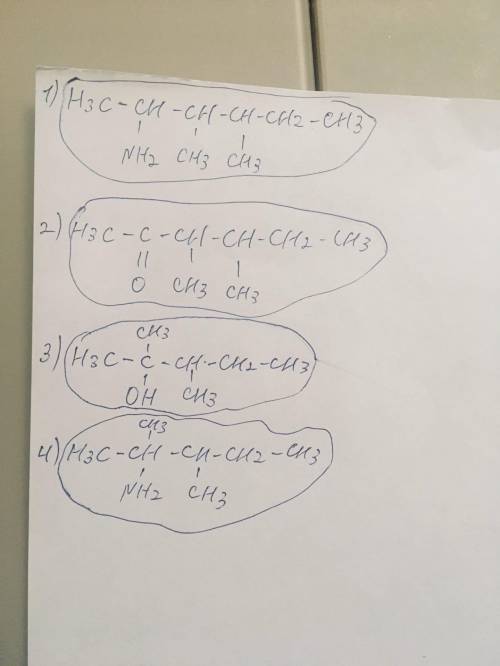 1) H3C - CH - CH - CH - CH2 - CH3
NH2 CH3 CH3
2) H3C - C - CH - CH - CH2 - CH3
O CH3 CH3
CH3
3) H3C - C - CH - CH2 - CH3
OH CH3
CH3
4) H3C - CH - CH - CH2 - CH3
NH2 CH3